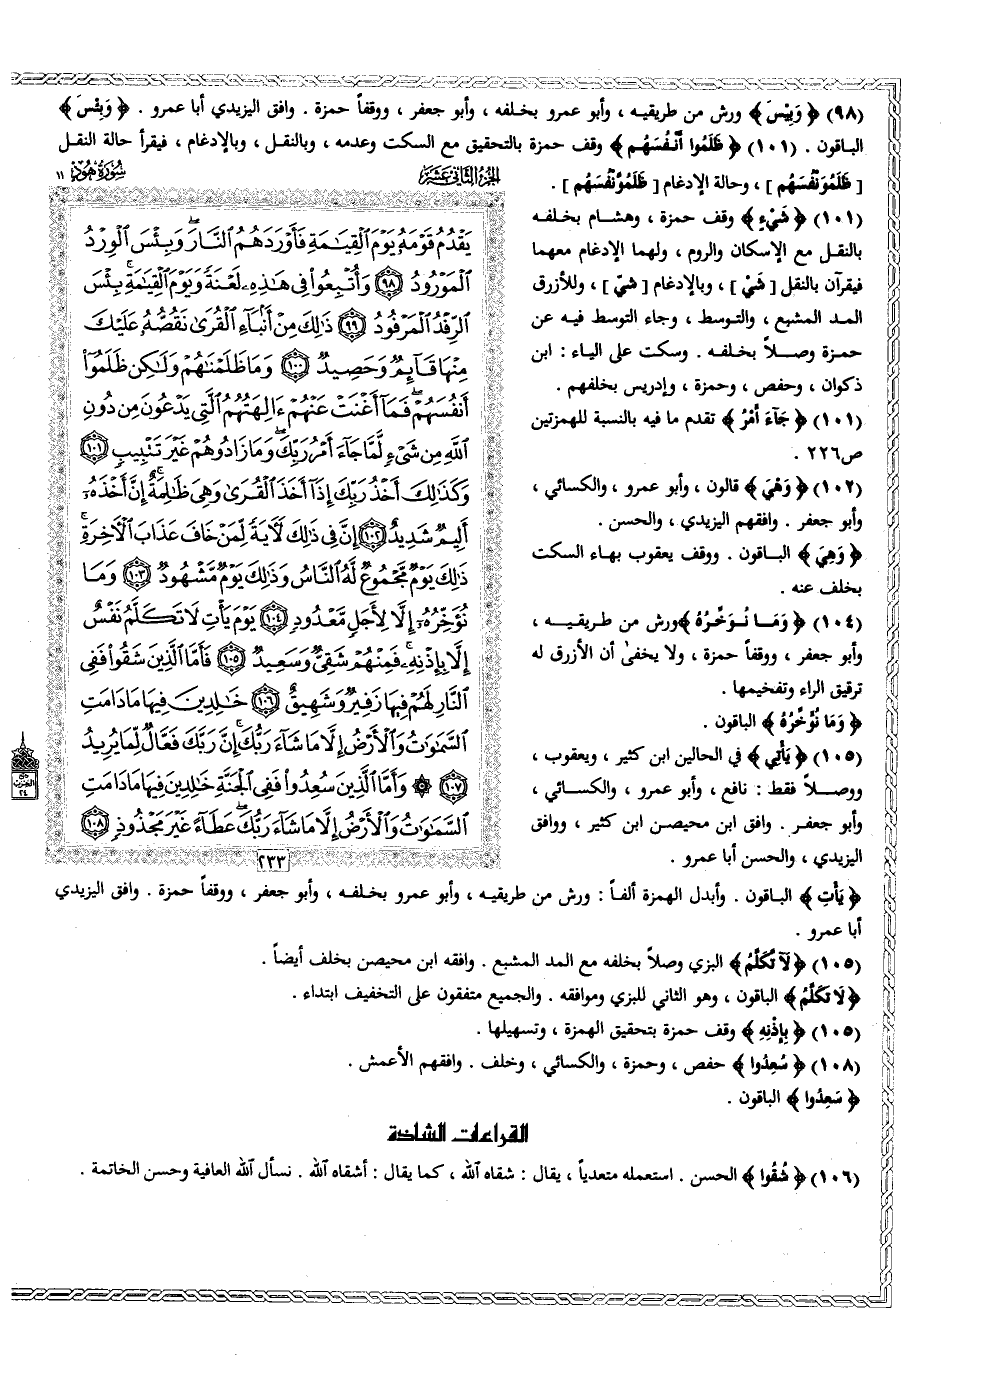 (٩٨) ﴿ وَبِيْسَ ﴾ ورش من طريقيه ، وأبو عمرو بخلفه ، وأبو جعفر ، ووقفاً حمزة . وافق اليزيدي أبا عمرو . ﴿ وَبِئْسَ ﴾
الباقون . (١٠١) ﴿ ظَلَمُوا أَنْفُسَهُم ﴾ وقف حمزة بالتحقيق مع السكت وعدمه ، وبالنقل ، وبالإدغام ، فيقرأ حالة النقل
[ ظَلَمُوَنْفُسَهُم ] ، وحالة الإدغام [ ظَلَمُوَّنْفُسَهُم ] .
(١٠١) ﴿ شَيْءٍ ﴾ وقف حمزة ، وهشام بخلفه
بالنقل مع الإسكان والروم ، ولهما الإدغام معهما
فيقرآن بالنقل [ شَيْ ] ، وبالإدغام [ شيّ ] ، وللأزرق
المد المشبع ، والتوسط ، وجاء التوسط فيه عن
حمزة وصلاً بخلفه . وسكت على الياء : ابن
ذكوان ، وحفص ، وحمزة ، وإدريس بخلفهم .
(١٠١) ﴿ جَآءَ أَمْرُ ﴾ تقدم ما فيه بالنسبة للهمزتين
ص٢٢٦ .
(١٠٢) ﴿ وَهْيَ ﴾ قالون ، وأبو عمرو ، والكسائي ،
وأبو جعفر . وافقهم اليزيدي ، والحسن .
﴿ وَهِيَ ﴾ الباقون . ووقف يعقوب بهاء السكت
بخلف عنه .
(١٠٤) ﴿ وَمَا نُوَخِّرُهُ ﴾ ورش من طريقيه ،
وأبو جعفر ، ووقفاً حمزة ، ولا يخفىٰ أن الأزرق له
ترقيق الراء وتفخيمها .
﴿ وَمَا نُؤَخِّرُهُ ﴾ الباقون .
(١٠٥) ﴿ يَأْتِي ﴾ في الحالين ابن كثير ، ويعقوب ،
ووصلاً فقط : نافع ، وأبو عمرو ، والكسائي ،
وأبو جعفر . وافق ابن محيصن ابن كثير ، ووافق
اليزيدي ، والحسن أبا عمرو .
سُورَةُ هُودٍ ١١
الجزء الثاني عشر
يَقْدُمُ قَوْمَهُ يَوْمَ الْقِيَامَةِ فَأَوْرَدَهُمُ النَّارَ ۖ وَبِئْسَ الْوِرْدُ
الْمَوْرُودُ ٩٨ وَأُتْبِعُوا فِي هَٰذِهِ لَعْنَةً وَيَوْمَ الْقِيَامَةِ ۚ بِئْسَ
الرِّفْدُ الْمَرْفُودُ ٩٩ ذَٰلِكَ مِنْ أَنْبَاءِ الْقُرَىٰ نَقُصُّهُ عَلَيْكَ
مِنْهَا قَائِمٌ وَحَصِيدٌ ١٠٠ وَمَا ظَلَمْنَاهُمْ وَلَٰكِنْ ظَلَمُوا
أَنْفُسَهُمْ ۖ فَمَا أَغْنَتْ عَنْهُمْ آلِهَتُهُمُ الَّتِي يَدْعُونَ مِنْ دُونِ
اللَّهِ مِنْ شَيْءٍ لَمَّا جَاءَ أَمْرُ رَبِّكَ ۖ وَمَا زَادُوهُمْ غَيْرَ تَتْبِيبٍ ١٠١
وَكَذَٰلِكَ أَخْذُ رَبِّكَ إِذَا أَخَذَ الْقُرَىٰ وَهِيَ ظَالِمَةٌ ۚ إِنَّ أَخْذَهُ
أَلِيمٌ شَدِيدٌ ١٠٢ إِنَّ فِي ذَٰلِكَ لَآيَةً لِمَنْ خَافَ عَذَابَ الْآخِرَةِ ۚ
ذَٰلِكَ يَوْمٌ مَجْمُوعٌ لَهُ النَّاسُ وَذَٰلِكَ يَوْمٌ مَشْهُودٌ ١٠٣ وَمَا
نُؤَخِّرُهُ إِلَّا لِأَجَلٍ مَعْدُودٍ ١٠٤ يَوْمَ يَأْتِ لَا تَكَلَّمُ نَفْسٌ
إِلَّا بِإِذْنِهِ ۚ فَمِنْهُمْ شَقِيٌّ وَسَعِيدٌ ١٠٥ فَأَمَّا الَّذِينَ شَقُوا فَفِي
النَّارِ لَهُمْ فِيهَا زَفِيرٌ وَشَهِيقٌ ١٠٦ خَالِدِينَ فِيهَا مَا دَامَتِ
السَّمَاوَاتُ وَالْأَرْضُ إِلَّا مَا شَاءَ رَبُّكَ ۚ إِنَّ رَبَّكَ فَعَّالٌ لِمَا يُرِيدُ
١٠٧ ۞ وَأَمَّا الَّذِينَ سُعِدُوا فَفِي الْجَنَّةِ خَالِدِينَ فِيهَا مَا دَامَتِ
السَّمَاوَاتُ وَالْأَرْضُ إِلَّا مَا شَاءَ رَبُّكَ ۖ عَطَاءً غَيْرَ مَجْذُوذٍ ١٠٨
٢٣٣
﴿ يَأْتِ ﴾ الباقون . وأبدل الهمزة ألفاً : ورش من طريقيه ، وأبو عمرو بخلفه ، وأبو جعفر ، ووقفاً حمزة . وافق اليزيدي
أبا عمرو .
(١٠٥) ﴿ لَآ تَّكَلَّمُ ﴾ البزي وصلاً بخلفه مع المد المشبع . وافقه ابن محيصن بخلف أيضاً .
﴿ لَا تَكَلَّمُ ﴾ الباقون ، وهو الثاني للبزي وموافقه . والجميع متفقون على التخفيف ابتداء .
(١٠٥) ﴿ بِإِذْنِهِ ﴾ وقف حمزة بتحقيق الهمزة ، وتسهيلها .
(١٠٨) ﴿ سُعِدُوا ﴾ حفص ، وحمزة ، والكسائي ، وخلف . وافقهم الأعمش .
﴿ سَعِدُوا ﴾ الباقون .
القراءات الشاذة
(١٠٦) ﴿ شُقُوا ﴾ الحسن . استعمله متعدياً ، يقال : شقاه الله ، كما يقال : أشقاه الله . نسأل الله العافية وحسن الخاتمة .